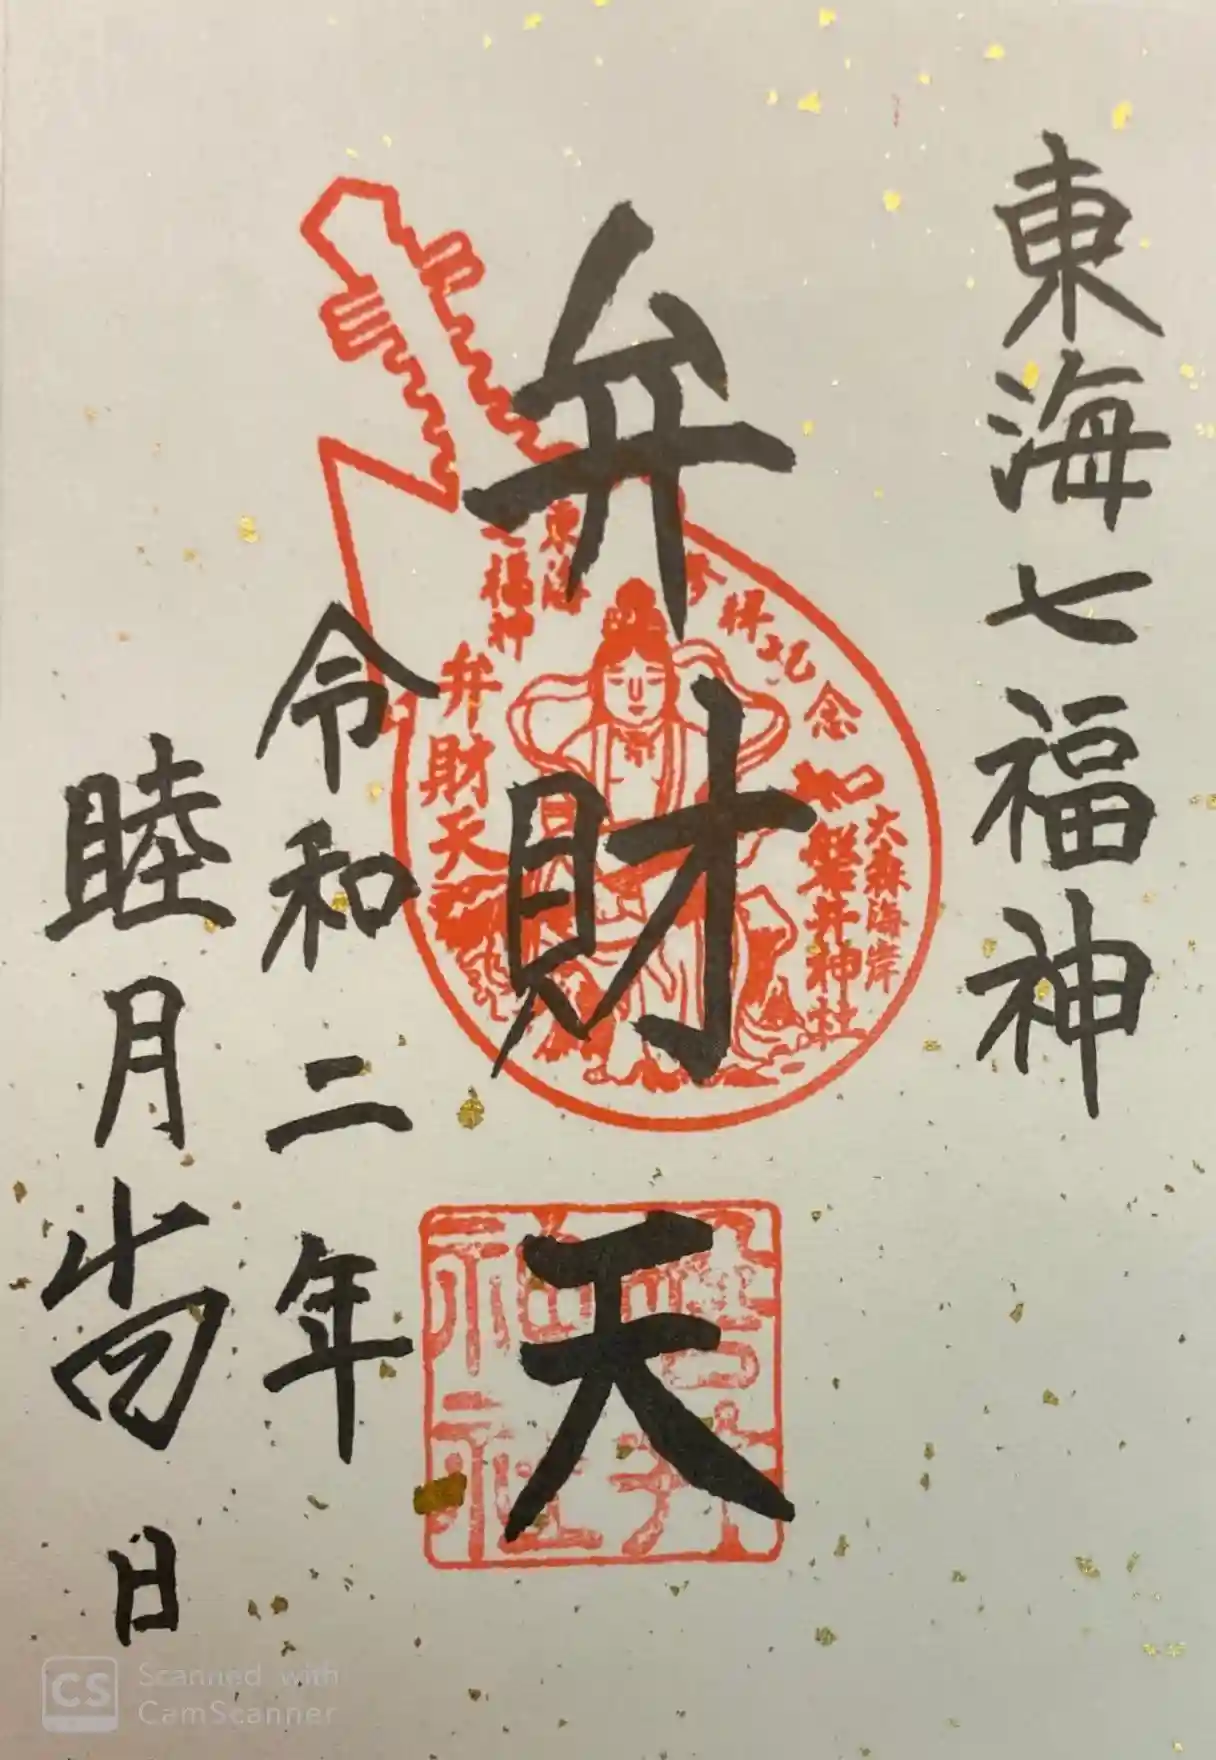 東海七福神
弁財天
令和二年
睦月吉日
東海
七福神
弁財天
参拝記念
大森海岸
磐井神社
磐井
神社
CS Scanned with
CamScanner